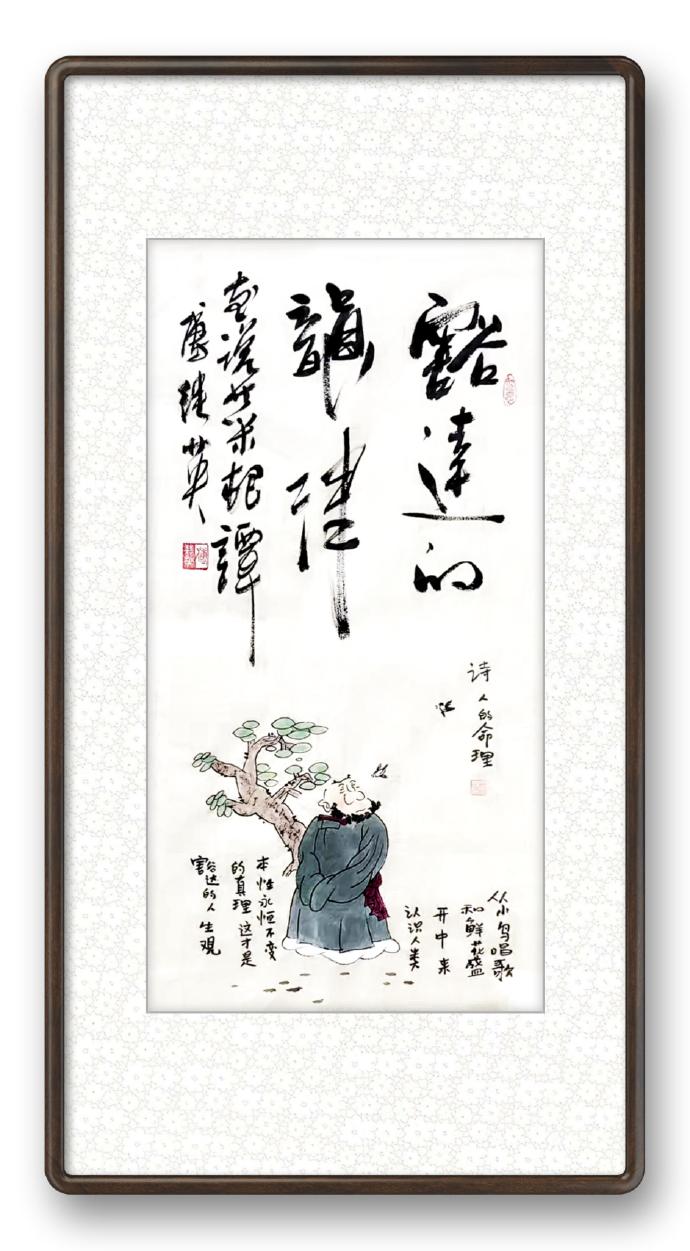 豁達的
韻律
画说菜根譚
诗人的命理
从小鸟唱歌
和鲜花盛
开中来
认识人类
本性永恒不变
的真理这才是
豁达的人生观